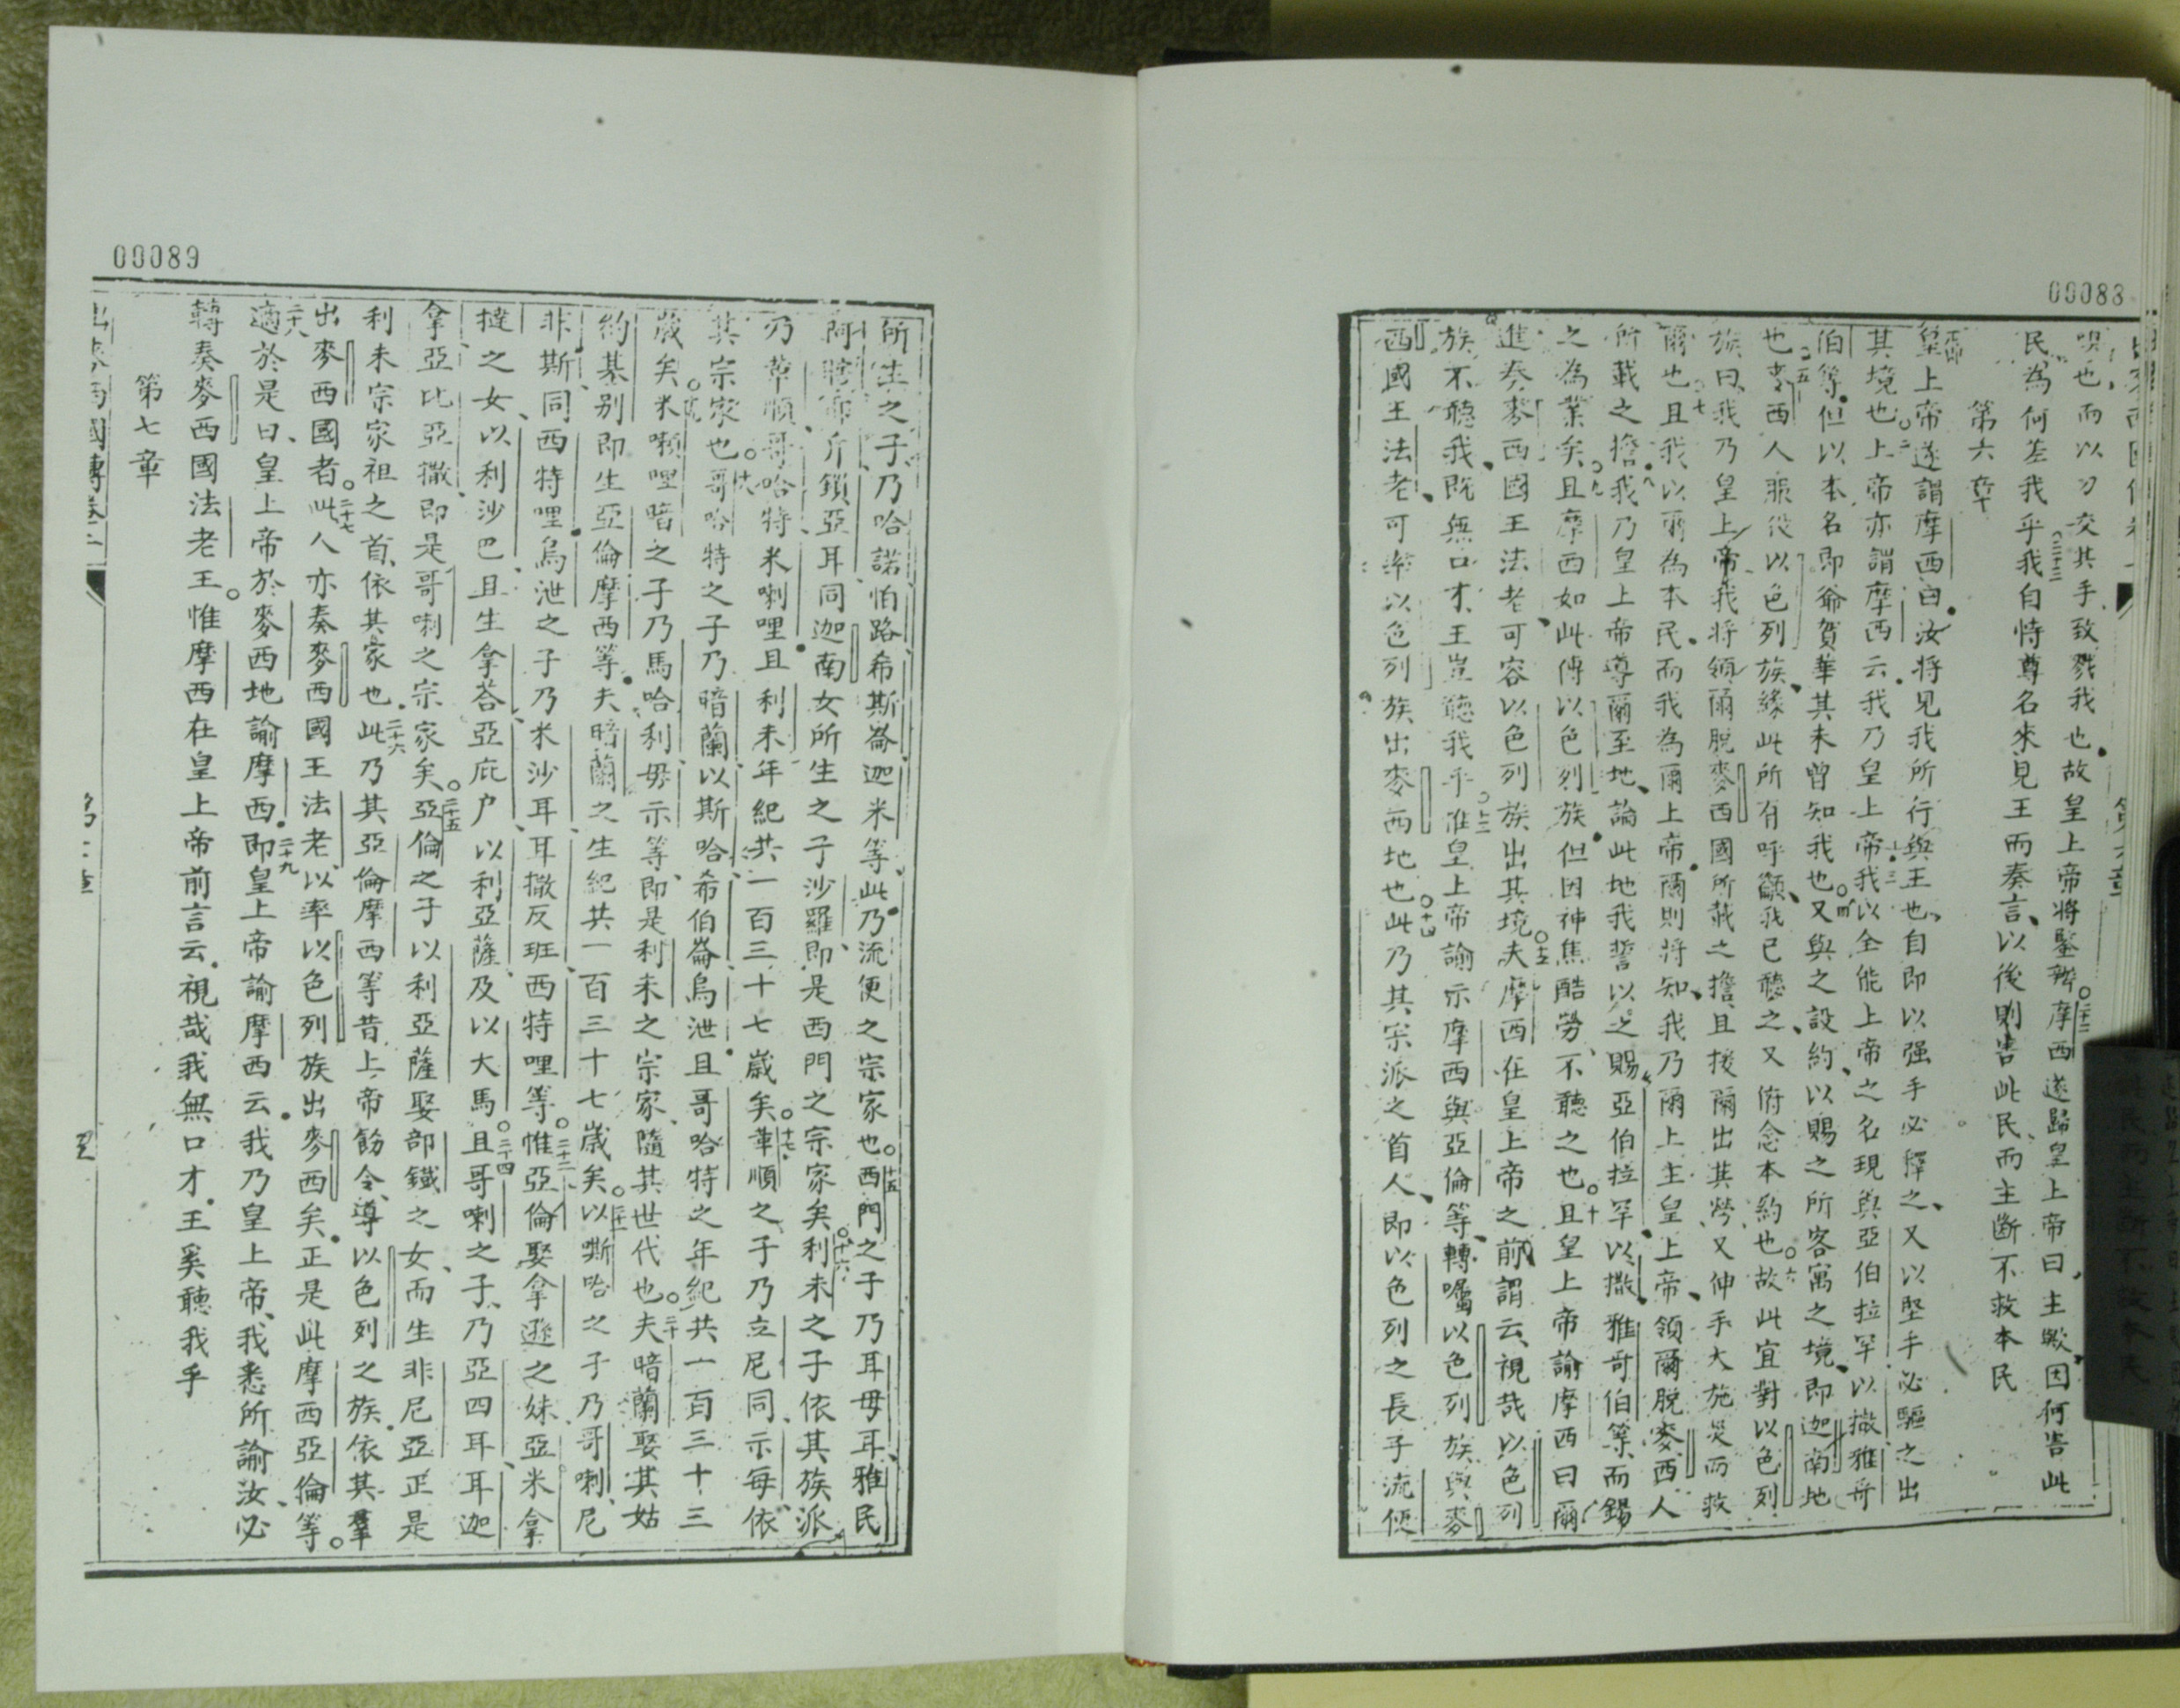 00088
唄也而以刀交其手致戮我也故皇上帝將鑒辦○二十二摩西遂歸皇上帝曰主歟因何害此
民為何差我乎二十三我自恃尊名來見王而奏言以後則害此民而主斷不救本民
第六章
皇上帝遂謂摩西曰汝將見我所行與王也自即以强手必釋之又以堅手必驅之出
其境也○二上帝亦謂摩西云我乃皇上帝三我以全能上帝之名現與亞伯拉罕以撒雅哥
伯等但以本名即爺賀華其未曾知我也○四又與之設約以賜之所客寓之境即迦南地
也○五麥西人服從以色列族緣此所有呼籲我已聽之又俯念本約也○六故此宜對以色列
族曰我乃皇上帝我將領爾脫麥西國所載之擔且援爾出其勞又伸手大施災而救
爾也○七且我以爾為本民而我為爾上帝爾則將知我乃爾上主皇上帝領爾脫麥西人
所載之擔八我乃皇上帝導爾至地論此地我誓以之賜亞伯拉罕以撒雅哥伯等而錫
之為業矣○九且摩西如此傳以色列族但因神焦酷勞不聽之也○十且皇上帝諭摩西曰爾
進奏麥西國王法老可容以色列族出其境○十二夫摩西在皇上帝之前謂云視哉以色列
族不聽我既無口才王豈聽我乎○十三惟皇上帝諭示摩西與亞倫等轉囑以色列族與麥
西國王法老可率以色列族出麥西地也○十四此乃其宗派之首人即以色列之長子流便
00089
所生之子乃哈諾怕路希斯崙迦米等此乃流便之宗家也○十五西門之子乃耳毋耳雅民
阿瞎帝斤鎖亞耳同迦南女所生之子沙羅即是西門之宗家矣○十六利未之子依其族派
乃革順哥哈特米喇哩且利未年紀共一百三十七歲矣○十七革順之子乃立尼同示每依
其宗家也○十八哥哈特之子乃暗蘭以斯哈希伯崙烏泄且哥哈特之年紀共一百三十三
歲矣○十九米嚬哩暗之子乃馬哈利毋示等即是利未之宗家隨其世代也○二十夫暗蘭娶其姑
約基別即生亞倫摩西等夫暗蘭之生紀共一百三十七歲矣○二十一以嘶哈之子乃哥喇尼
非斯同西特哩烏泄之子乃米沙耳耳撒反班西特哩等○二十三惟亞倫娶拿遜之妹亞米拿
撻之女以利沙巴且生拿荅亞庇户以利亞薩及以大馬○二十四且哥喇之子乃亞四耳耳迦
拿亞比亞撒即是哥喇之宗家矣○二十五亞倫之子以利亞薩娶部鐵之女而生非尼亞正是
利未宗家祖之首依其家也二十六此乃其亞倫摩西等昔上帝飭令導以色列之族依其羣
出麥西國者○二十七此人亦奏麥西國王法老以率以色列族出麥西矣正是此摩西亞倫等○
二十八適於是日皇上帝於麥西地諭摩西二十九即皇上帝諭摩西云我乃皇上帝我悉所諭汝必
轉奏麥西國法老王○惟摩西在皇上帝前言云視哉我無口才王奚聽我乎
第七章